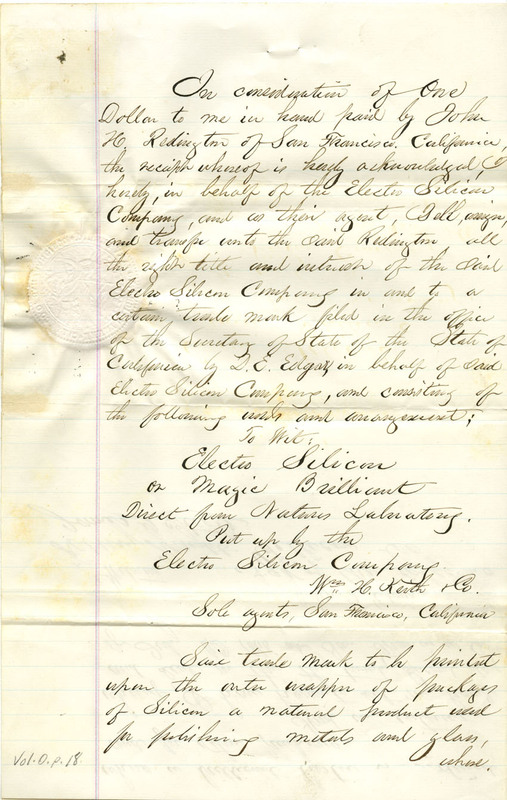 In consideration of One
Dollar to me in hand paid by John
H. Redington of San Francisco, California,
the receipt whereof is hereby acknowledged, I
hereby, in behalf of the Electro Silicon
Company, and as their agent, Sell, assign,
and transfer unto the said Redington, all
the right title and interest of the said
Electro Silicon Company in and to a
certain trade mark filed in the office
of the Secretary of State of the State of
California by D. E. Edgar, in behalf of said
Electro Silicon Company, and consisting of
the following words and arrangement;
To Wit:
Electro Silicon
or Magic Brilliant
Direct from Natures Laboratory.
Put up by the
Electro Silicon Company.
Wm H. Keith & Co.
Sole agents, San Francisco, California
Said trade mark to be printed
upon the outer wrapper of packages
of Silicon a natural product used
for polishing metals and glass,
where.
Vol. D. p. 18.